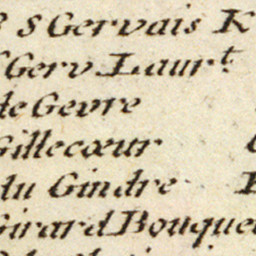 S Gervais K
Gerv Laur.t
de Gevre
Gillecœur
du Gindre
Girard Bouquet